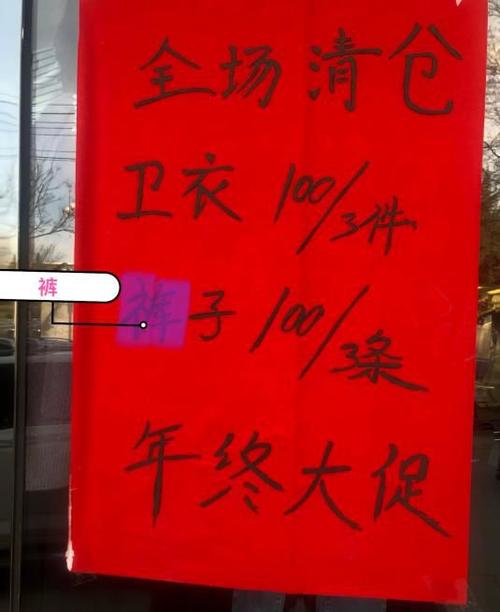 全场清仓
卫衣 100/3件
裤
裤子 100/3条
年终大促